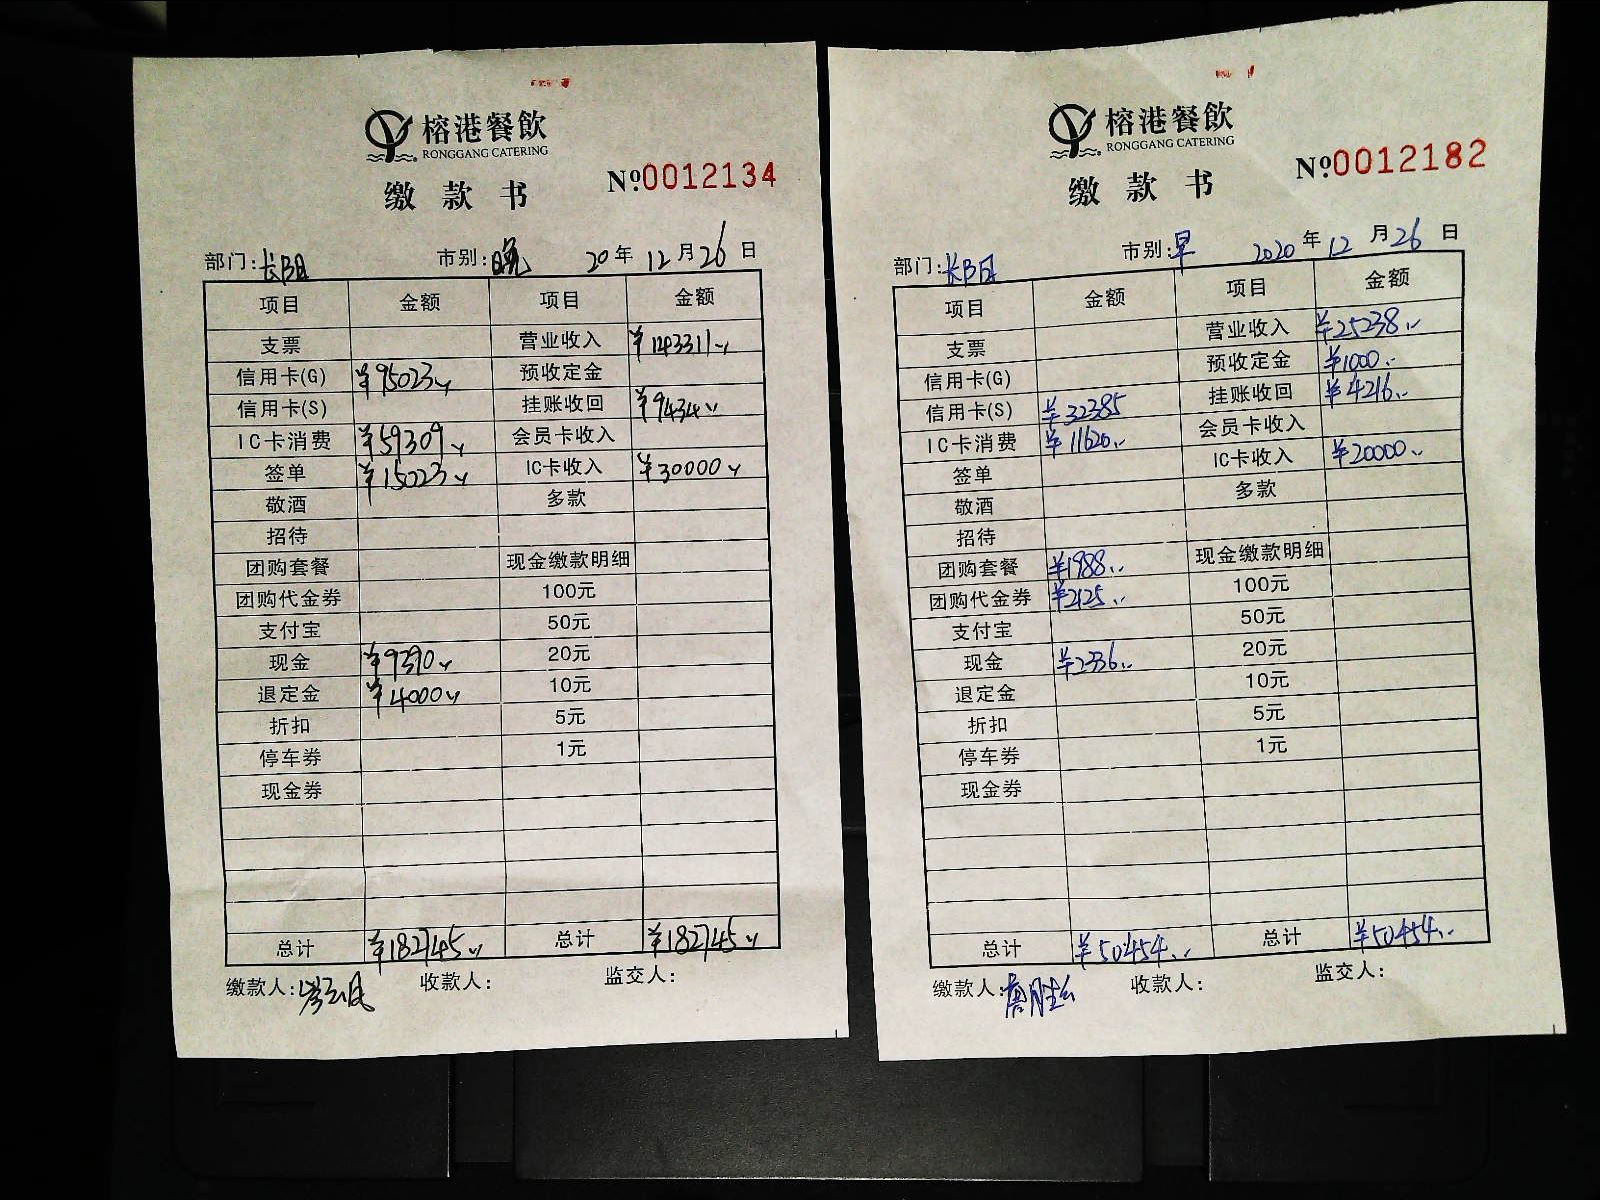 榕港餐飲
RONGGANG CATERING
缴款书
№0012134
部门:长阳 市别:晚 20年12月26日
项目 金额 项目 金额
支票 营业收入 ¥143311
信用卡(G) ¥95023 预收定金
信用卡(S) 挂账收回 ¥9434
IC卡消费 ¥59309 会员卡收入
签单 ¥15023 IC卡收入 ¥30000
敬酒 多款
招待
团购套餐 现金缴款明细
团购代金券 100元
支付宝 50元
现金 ¥9390 20元
退定金 ¥4000 10元
折扣 5元
停车券 1元
现金券
总计 ¥182745 总计 ¥182745
缴款人: 收款人: 监交人:
榕港餐飲
RONGGANG CATERING
缴款书
№0012182
部门:长阳 市别:早 2020年12月26日
项目 金额 项目 金额
支票 营业收入 ¥25238
信用卡(G) 预收定金 ¥1000
信用卡(S) ¥32385 挂账收回 ¥4216
IC卡消费 ¥11620 会员卡收入
签单 IC卡收入 ¥20000
敬酒 多款
招待
团购套餐 ¥1988 现金缴款明细
团购代金券 ¥2125 100元
支付宝 50元
现金 ¥2336 20元
退定金 10元
折扣 5元
停车券 1元
现金券
总计 ¥50454 总计 ¥50454
缴款人: 收款人: 监交人: